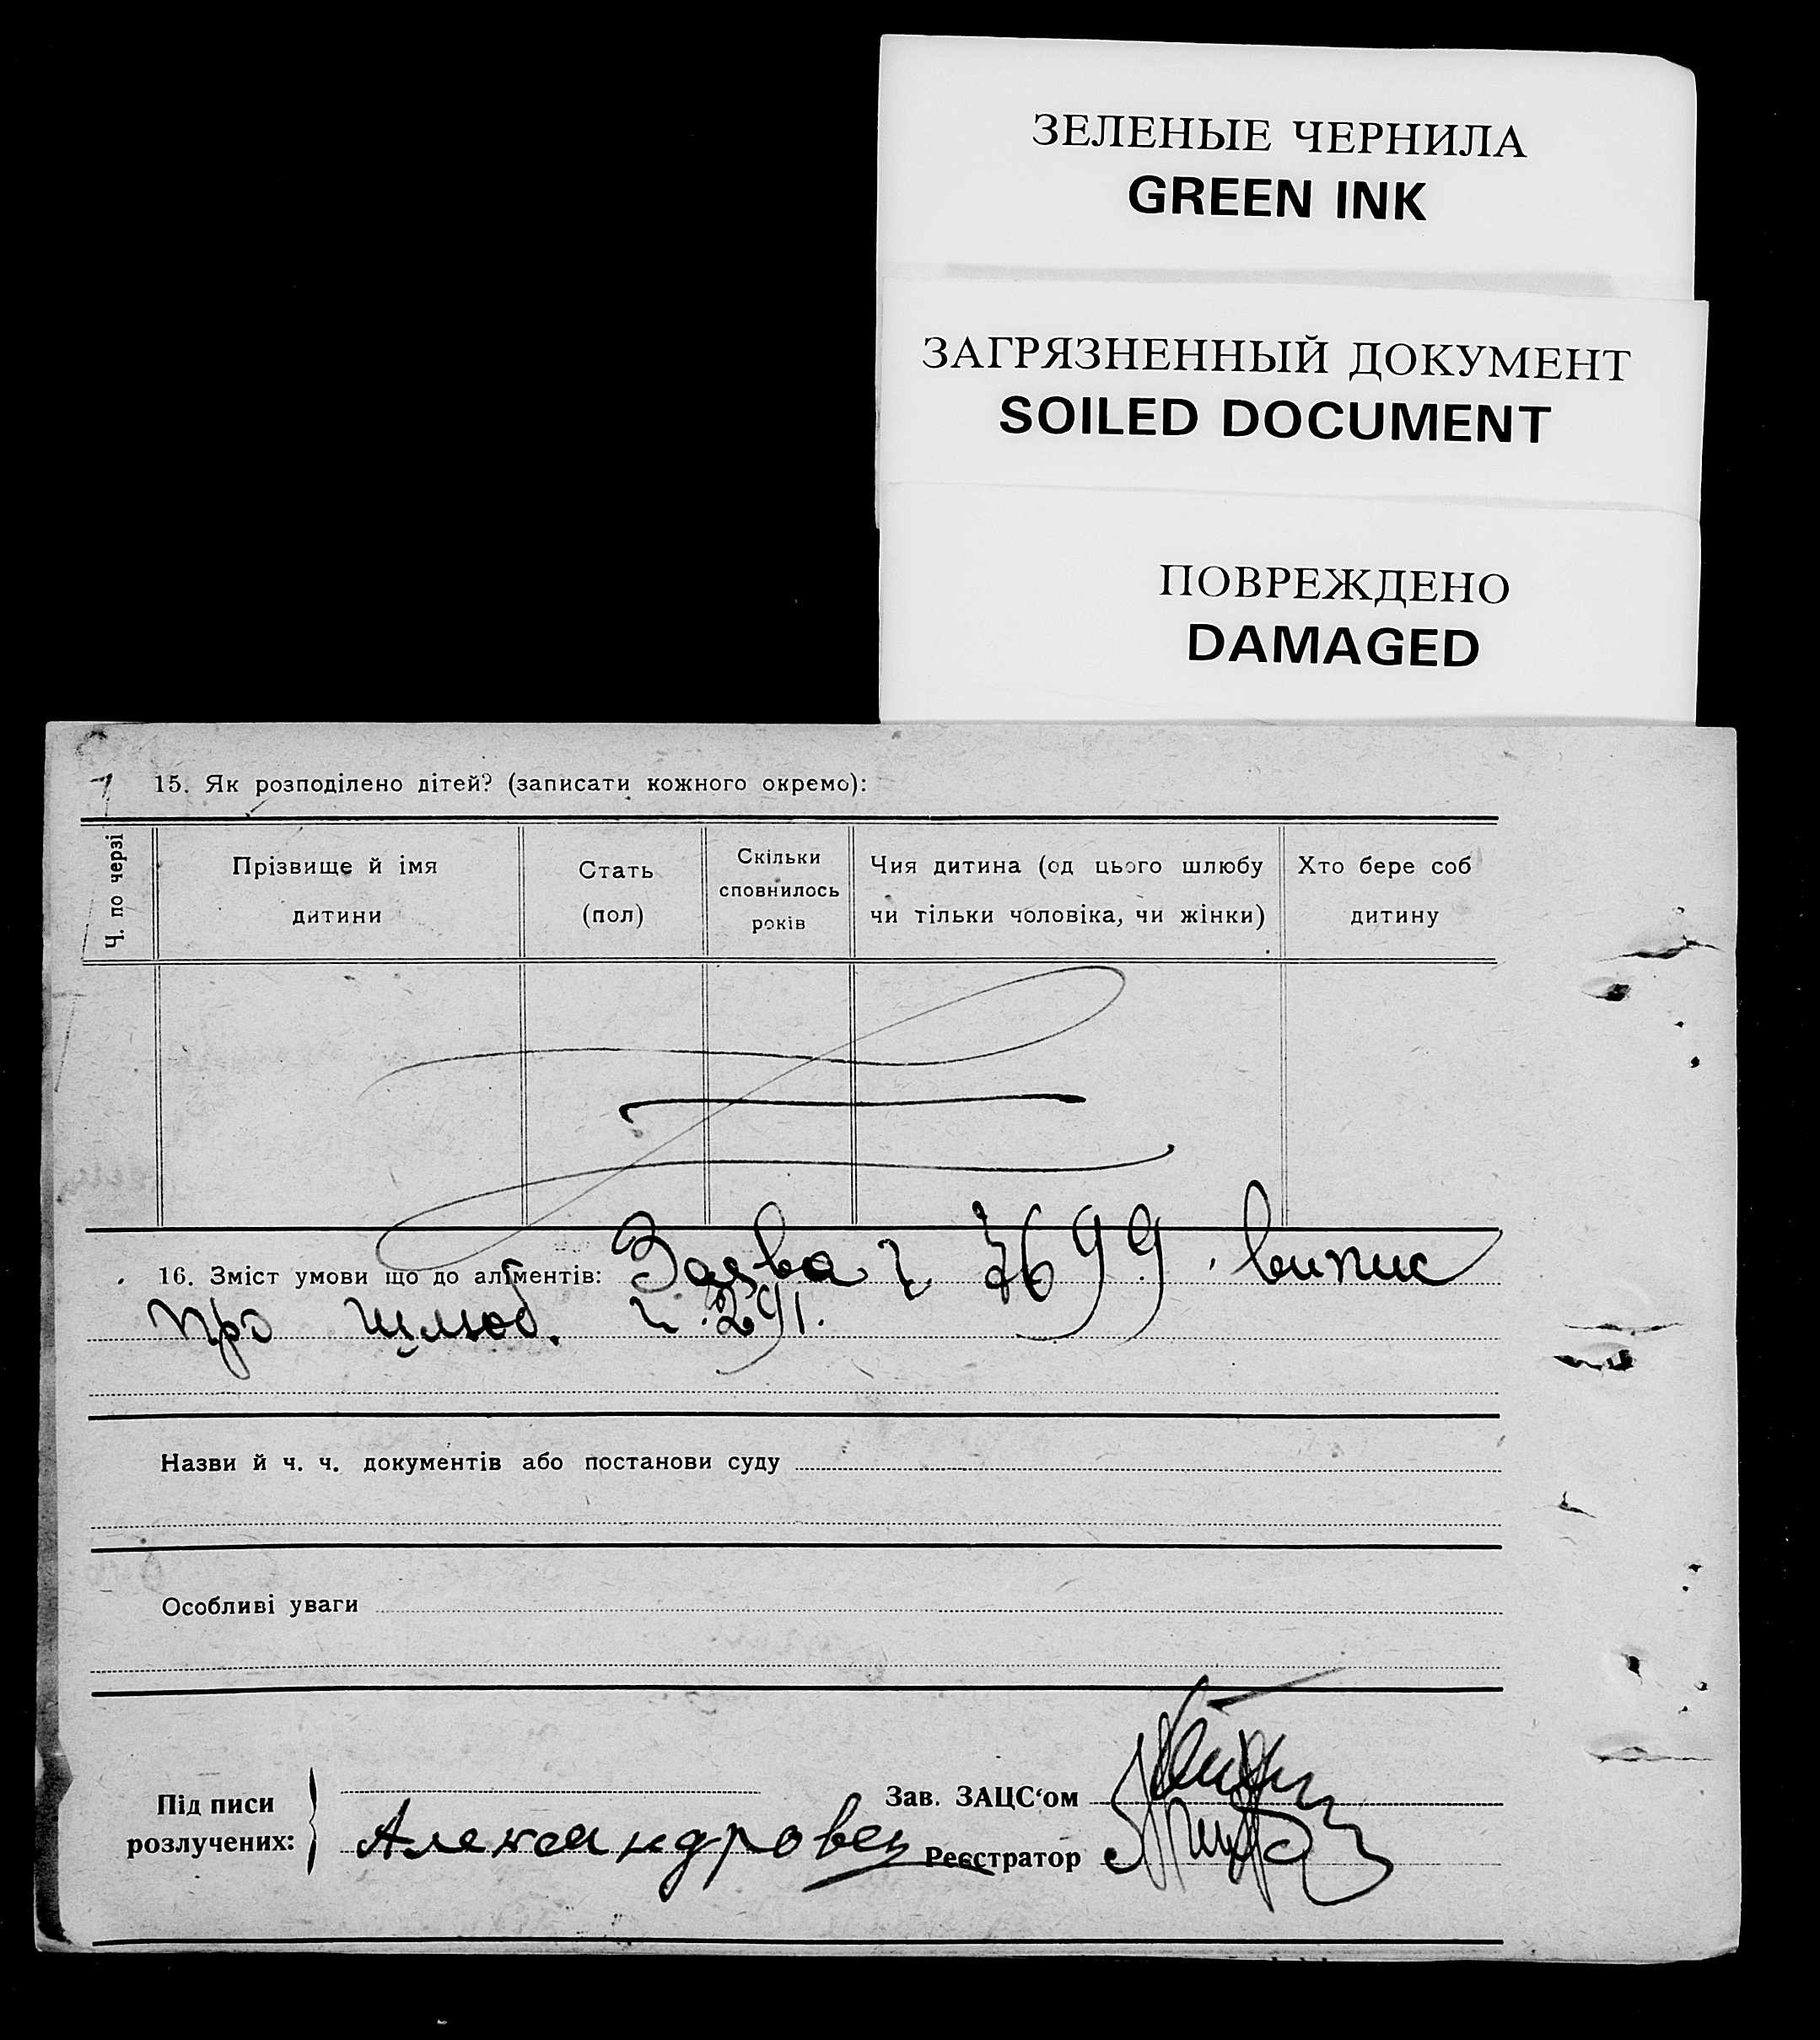 ЗЕЛЕНЫЕ ЧЕРНИЛА
GREEN INK
ЗАГРЯЗНЕННЫЙ ДОКУМЕНТ
SOILED DOCUMENT
ПОВРЕЖДЕНО
DAMAGED
15. Як розподілено дітей? (записати кожного окремо):
Ч. по черзі
Прізвище й імя
дитини
Стать
(пол)
Скільки
сповнилось
років
Чия дитина (од цього шлюбу
чи тільки чоловіка, чи жінки)
Хто бере соб
дитину
16. Зміст умови що до аліментів: Заява ч 7699. випис
про шлюб. ч. 291.
Назви й ч. ч. документів або постанови суду
Особливі уваги
Підписи
розлучених:
Александровец
Зав. ЗАЦС‘ом
Реєстратор